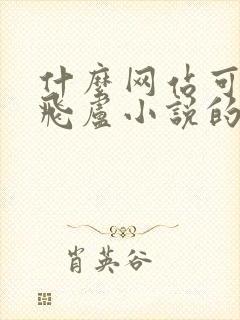 什麼网佔可
飛盧小說的
肖英谷